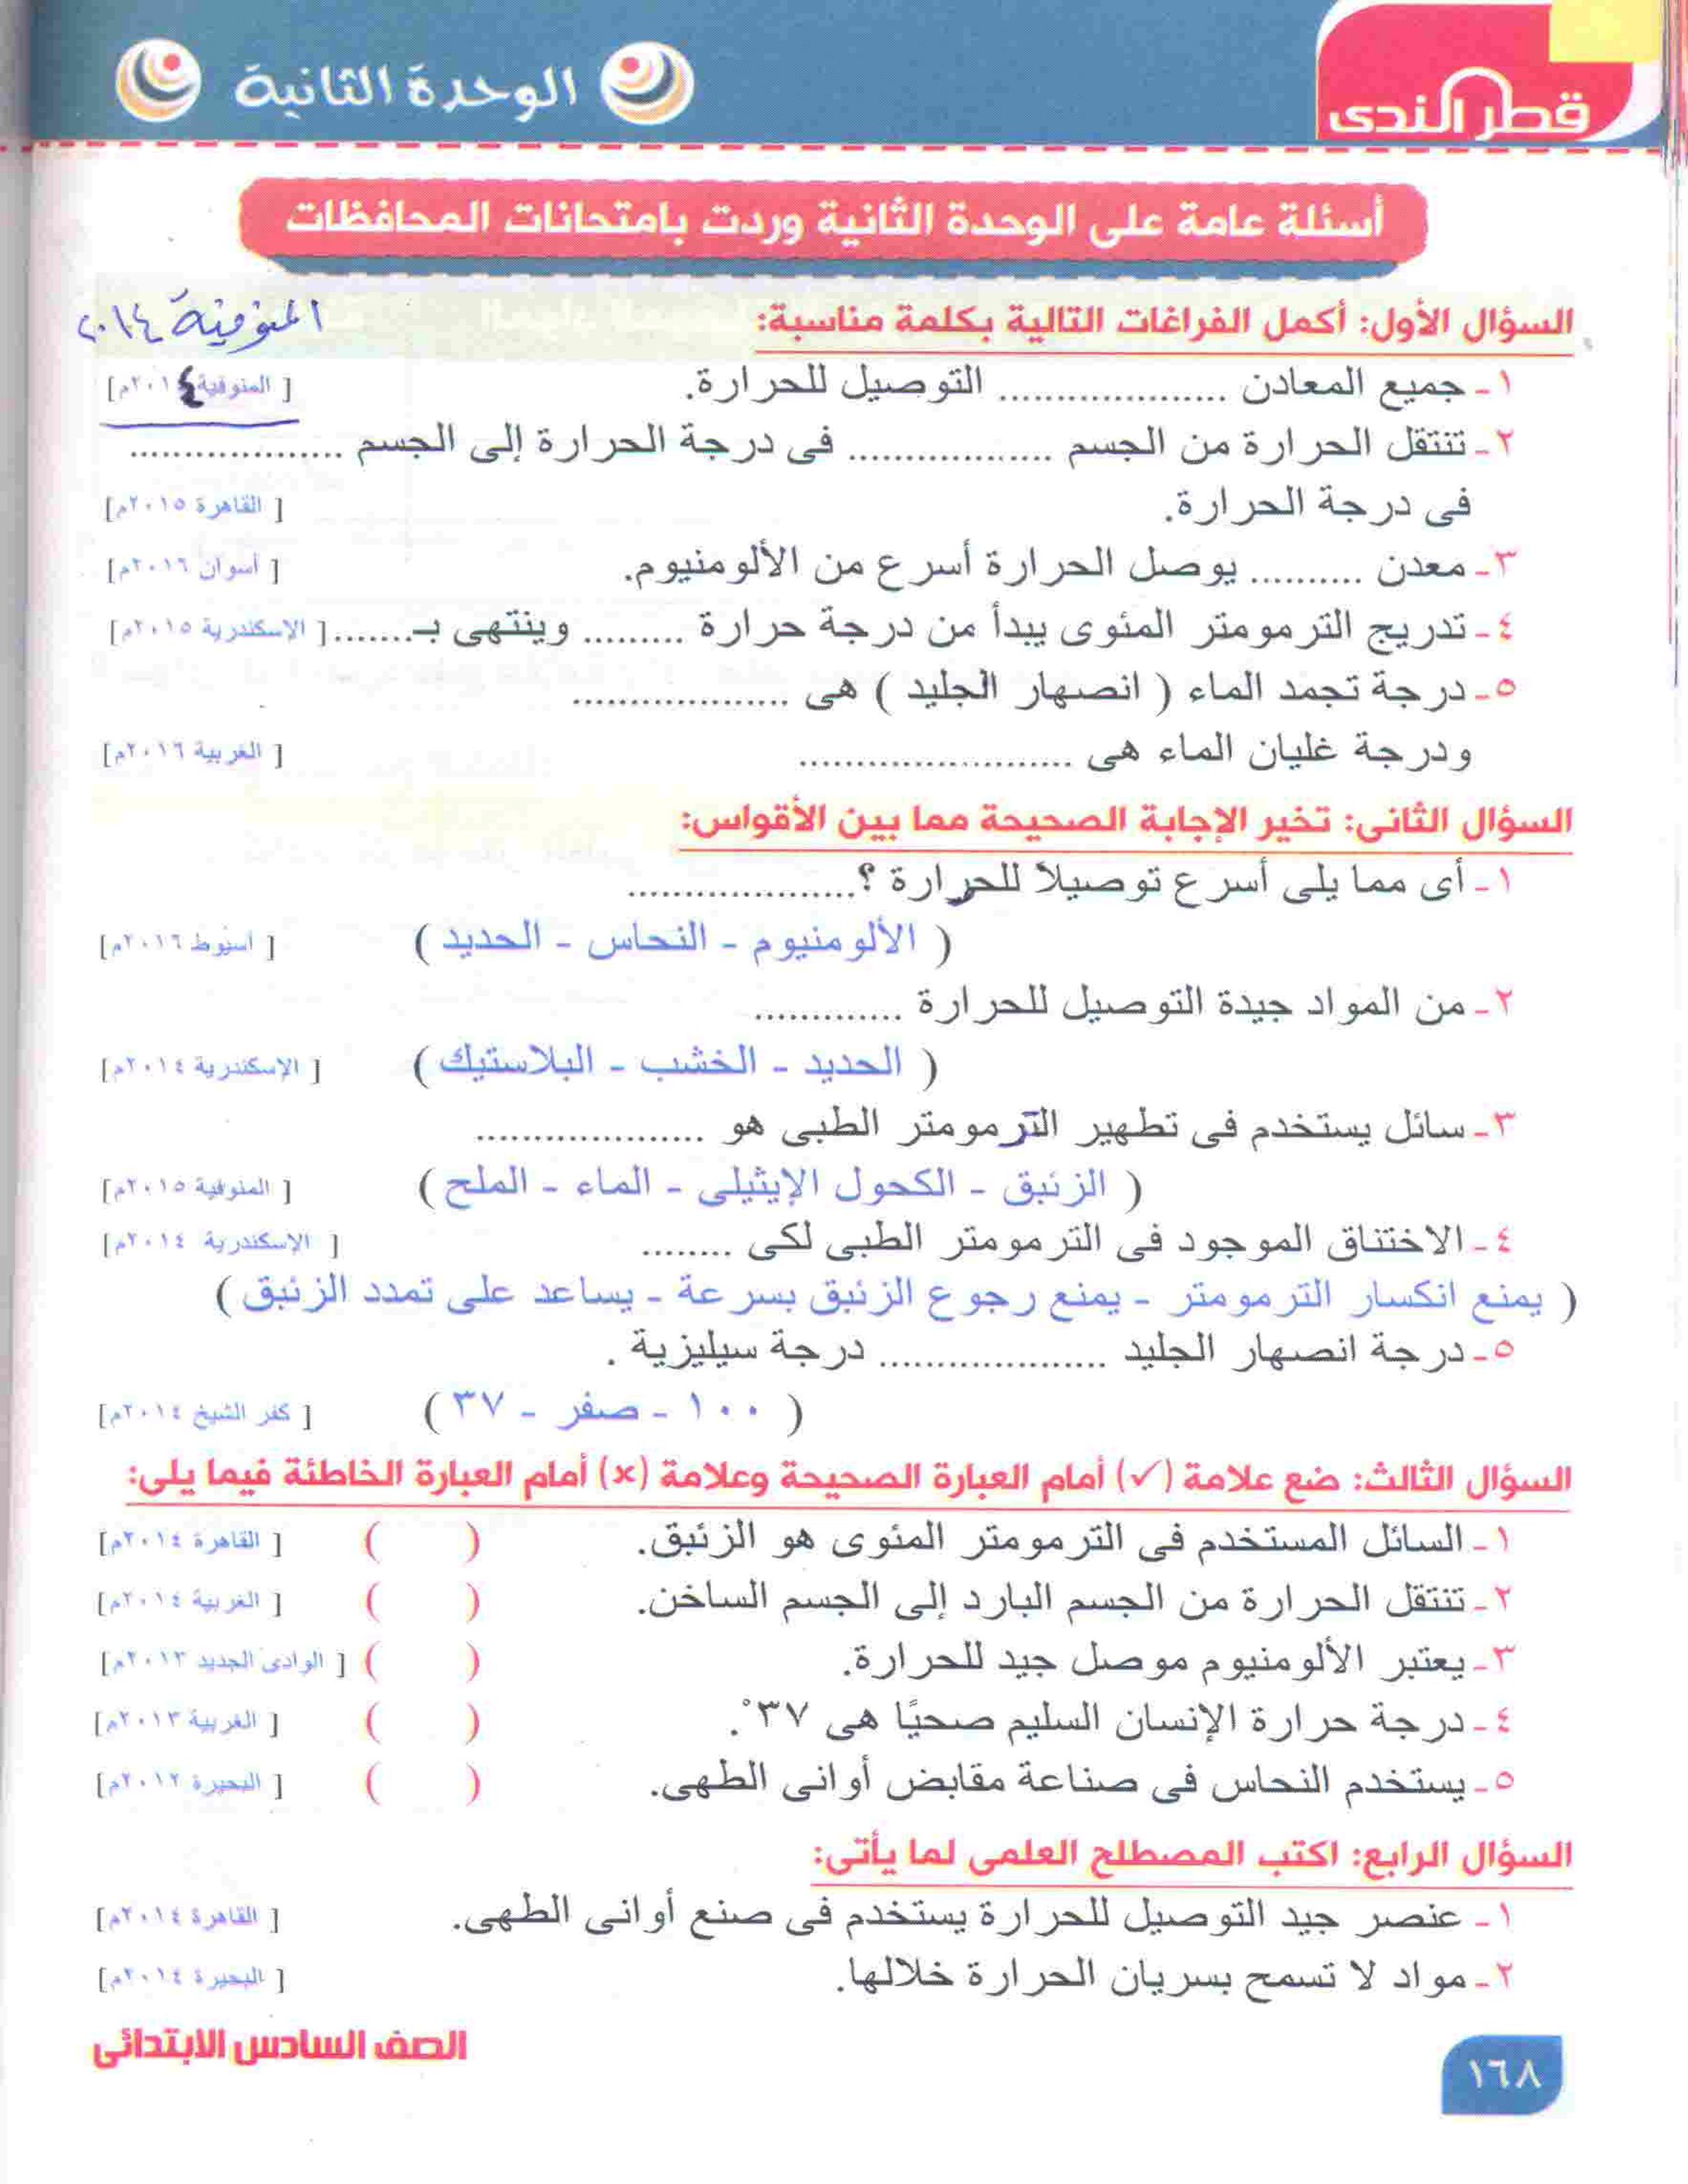 قطر الندى
الوحدة الثانية
أسئلة عامة على الوحدة الثانية وردت بامتحانات المحافظات
السؤال الأول: أكمل الفراغات التالية بكلمة مناسبة:
المنوفية ٢٠١٤
١- جميع المعادن .................... التوصيل للحرارة. [ المنوفية ٢٠١٤م]
٢- تنتقل الحرارة من الجسم .................. فى درجة الحرارة إلى الجسم ...................
فى درجة الحرارة. [ القاهرة ٢٠١٥م]
٣- معدن .......... يوصل الحرارة أسرع من الألومنيوم. [ أسوان ٢٠١٦م]
٤- تدريج الترمومتر المئوى يبدأ من درجة حرارة ......... وينتهى بـ....... [ الإسكندرية ٢٠١٥م]
٥- درجة تجمد الماء ( انصهار الجليد ) هى ...................
ودرجة غليان الماء هى ........................ [ الغربية ٢٠١٦م]
السؤال الثانى: تخير الإجابة الصحيحة مما بين الأقواس:
١- أى مما يلى أسرع توصيلاً للحرارة ؟....................
( الألومنيوم - النحاس - الحديد ) [ أسيوط ٢٠١٦م]
٢- من المواد جيدة التوصيل للحرارة .............
( الحديد - الخشب - البلاستيك ) [ الإسكندرية ٢٠١٤م]
٣- سائل يستخدم فى تطهير الترمومتر الطبى هو ....................
( الزئبق - الكحول الإيثيلى - الماء - الملح ) [ المنوفية ٢٠١٥م]
٤- الاختناق الموجود فى الترمومتر الطبى لكى ........ [ الإسكندرية ٢٠١٤م]
( يمنع انكسار الترمومتر - يمنع رجوع الزئبق بسرعة - يساعد على تمدد الزئبق )
٥- درجة انصهار الجليد .................... درجة سيليزية .
( ١٠٠ - صفر - ٣٧ ) [ كفر الشيخ ٢٠١٤م]
السؤال الثالث: ضع علامة (✓) أمام العبارة الصحيحة وعلامة (×) أمام العبارة الخاطئة فيما يلى:
١- السائل المستخدم فى الترمومتر المئوى هو الزئبق. ( ) [ القاهرة ٢٠١٤م]
٢- تنتقل الحرارة من الجسم البارد إلى الجسم الساخن. ( ) [ الغربية ٢٠١٤م]
٣- يعتبر الألومنيوم موصل جيد للحرارة. ( ) [ الوادى الجديد ٢٠١٣م]
٤- درجة حرارة الإنسان السليم صحيًا هى ٣٧°. ( ) [ الغربية ٢٠١٣م]
٥- يستخدم النحاس فى صناعة مقابض أوانى الطهى. ( ) [ البحيرة ٢٠١٢م]
السؤال الرابع: اكتب المصطلح العلمى لما يأتى:
١- عنصر جيد التوصيل للحرارة يستخدم فى صنع أوانى الطهى. [ القاهرة ٢٠١٤م]
٢- مواد لا تسمح بسريان الحرارة خلالها. [ البحيرة ٢٠١٤م]
الصف السادس الابتدائى
١٦٨